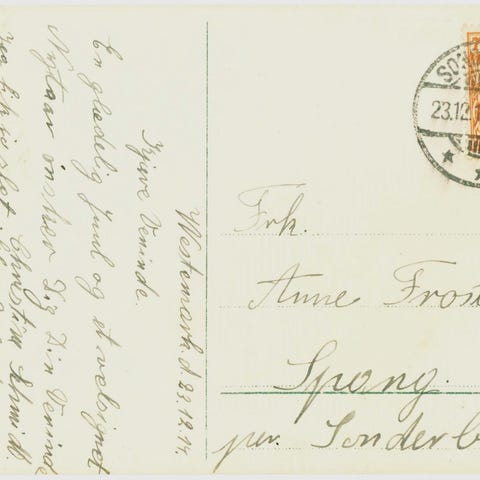 Westemark d 23.12.14.
Kjære Veninde.
En glædelig Juul og et velsignet
Nytaar ønsker Dig Din Veninde
Christine Schmidt
23.12.1
Frk.
Anne Frost
Spang.
per. Sonderb